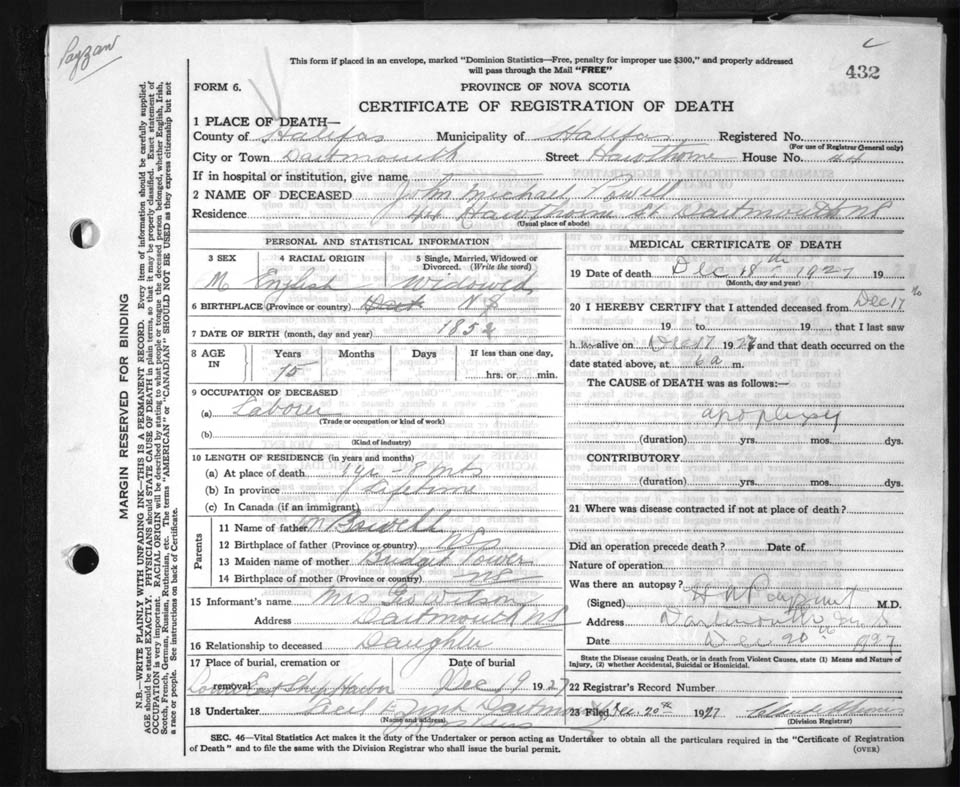 Payzant
This form if placed in an envelope, marked "Dominion Statistics—Free, penalty for improper use $300," and properly addressed
will pass through the Mail "FREE"
432
FORM 6.
PROVINCE OF NOVA SCOTIA
CERTIFICATE OF REGISTRATION OF DEATH
1 PLACE OF DEATH—
County of Halifax Municipality of Halifax Registered No.
(For use of Registrar General only)
City or Town Dartmouth Street Hawthorne House No. 44
If in hospital or institution, give name
2 NAME OF DECEASED John Michael Powell
Residence 44 Hawthorne St. Dartmouth NS
(Usual place of abode)
PERSONAL AND STATISTICAL INFORMATION
3 SEX 4 RACIAL ORIGIN 5 Single, Married, Widowed or
Divorced. (Write the word)
M English Widowed
6 BIRTHPLACE (Province or country) N S
7 DATE OF BIRTH (month, day and year) 1852
8 AGE IN Years Months Days If less than one day,
75 hrs. or min.
9 OCCUPATION OF DECEASED
(a) Laborer
(Trade or occupation or kind of work)
(b)
(Kind of industry)
10 LENGTH OF RESIDENCE (in years and months)
(a) At place of death 1 yr - 8 mts
(b) In province Lifetime
(c) In Canada (if an immigrant)
Parents
11 Name of father Powell
12 Birthplace of father (Province or country) NS
13 Maiden name of mother Bridget Power
14 Birthplace of mother (Province or country) NS
15 Informant's name Mrs Geo Wilson
Address Dartmouth NS
16 Relationship to deceased Daughter
17 Place of burial, cremation or removal Date of burial
Lower East Ship Harbor Dec 19 1927
18 Undertaker Cecil E. Zink Dartmouth
(Name and address)
MEDICAL CERTIFICATE OF DEATH
19 Date of death Dec 18th 1927 19
(Month, day and year)
20 I HEREBY CERTIFY that I attended deceased from Dec 17
19 to 19 that I last saw
h alive on Dec 17 1927 and that death occurred on the
date stated above, at 6 a m.
The CAUSE OF DEATH was as follows:—
apoplexy
(duration) yrs. mos. dys.
CONTRIBUTORY
(duration) yrs. mos. dys.
21 Where was disease contracted if not at place of death?
Did an operation precede death? Date of
Nature of operation
Was there an autopsy?
(Signed) M.D.
Address Dartmouth
Date Dec 20 1927
State the Disease causing Death, or in death from Violent Causes, state (1) Means and Nature of
Injury, (2) whether Accidental, Suicidal or Homicidal.
22 Registrar's Record Number
23 Filed Dec. 20th 1927
(Division Registrar)
SEC. 46—Vital Statistics Act makes it the duty of the Undertaker or person acting as Undertaker to obtain all the particulars required in the "Certificate of Registration
of Death" and to file the same with the Division Registrar who shall issue the burial permit.
(OVER)
MARGIN RESERVED FOR BINDING
N.B.—WRITE PLAINLY WITH UNFADING INK—THIS IS A PERMANENT RECORD. Every item of information should be carefully supplied.
AGE should be stated EXACTLY. PHYSICIANS should STATE CAUSE OF DEATH in plain terms, so that it may be properly classified. Exact statement of
OCCUPATION is very important. RACIAL ORIGIN will be described by stating to what people or tongue the deceased person belonged, whether English, Irish,
Scotch, French, German, Russian, Ruthenian, etc. The terms "AMERICAN" or "CANADIAN" SHOULD NOT BE USED as they express citizenship but not
a race or people. See instructions on back of Certificate.